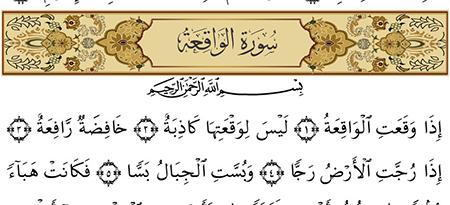 سُورَةُ الْوَاقِعَةِ
بِسْمِ اللَّهِ الرَّحْمَٰنِ الرَّحِيمِ
إِذَا وَقَعَتِ الْوَاقِعَةُ ﴿١﴾ لَيْسَ لِوَقْعَتِهَا كَاذِبَةٌ ﴿٢﴾ خَافِضَةٌ رَّافِعَةٌ ﴿٣﴾
إِذَا رُجَّتِ الْأَرْضُ رَجًّا ﴿٤﴾ وَبُسَّتِ الْجِبَالُ بَسًّا ﴿٥﴾ فَكَانَتْ هَبَاءً